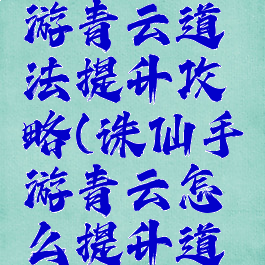 游青云道
法提升攻
略(诛仙手
游青云怎
么提升道